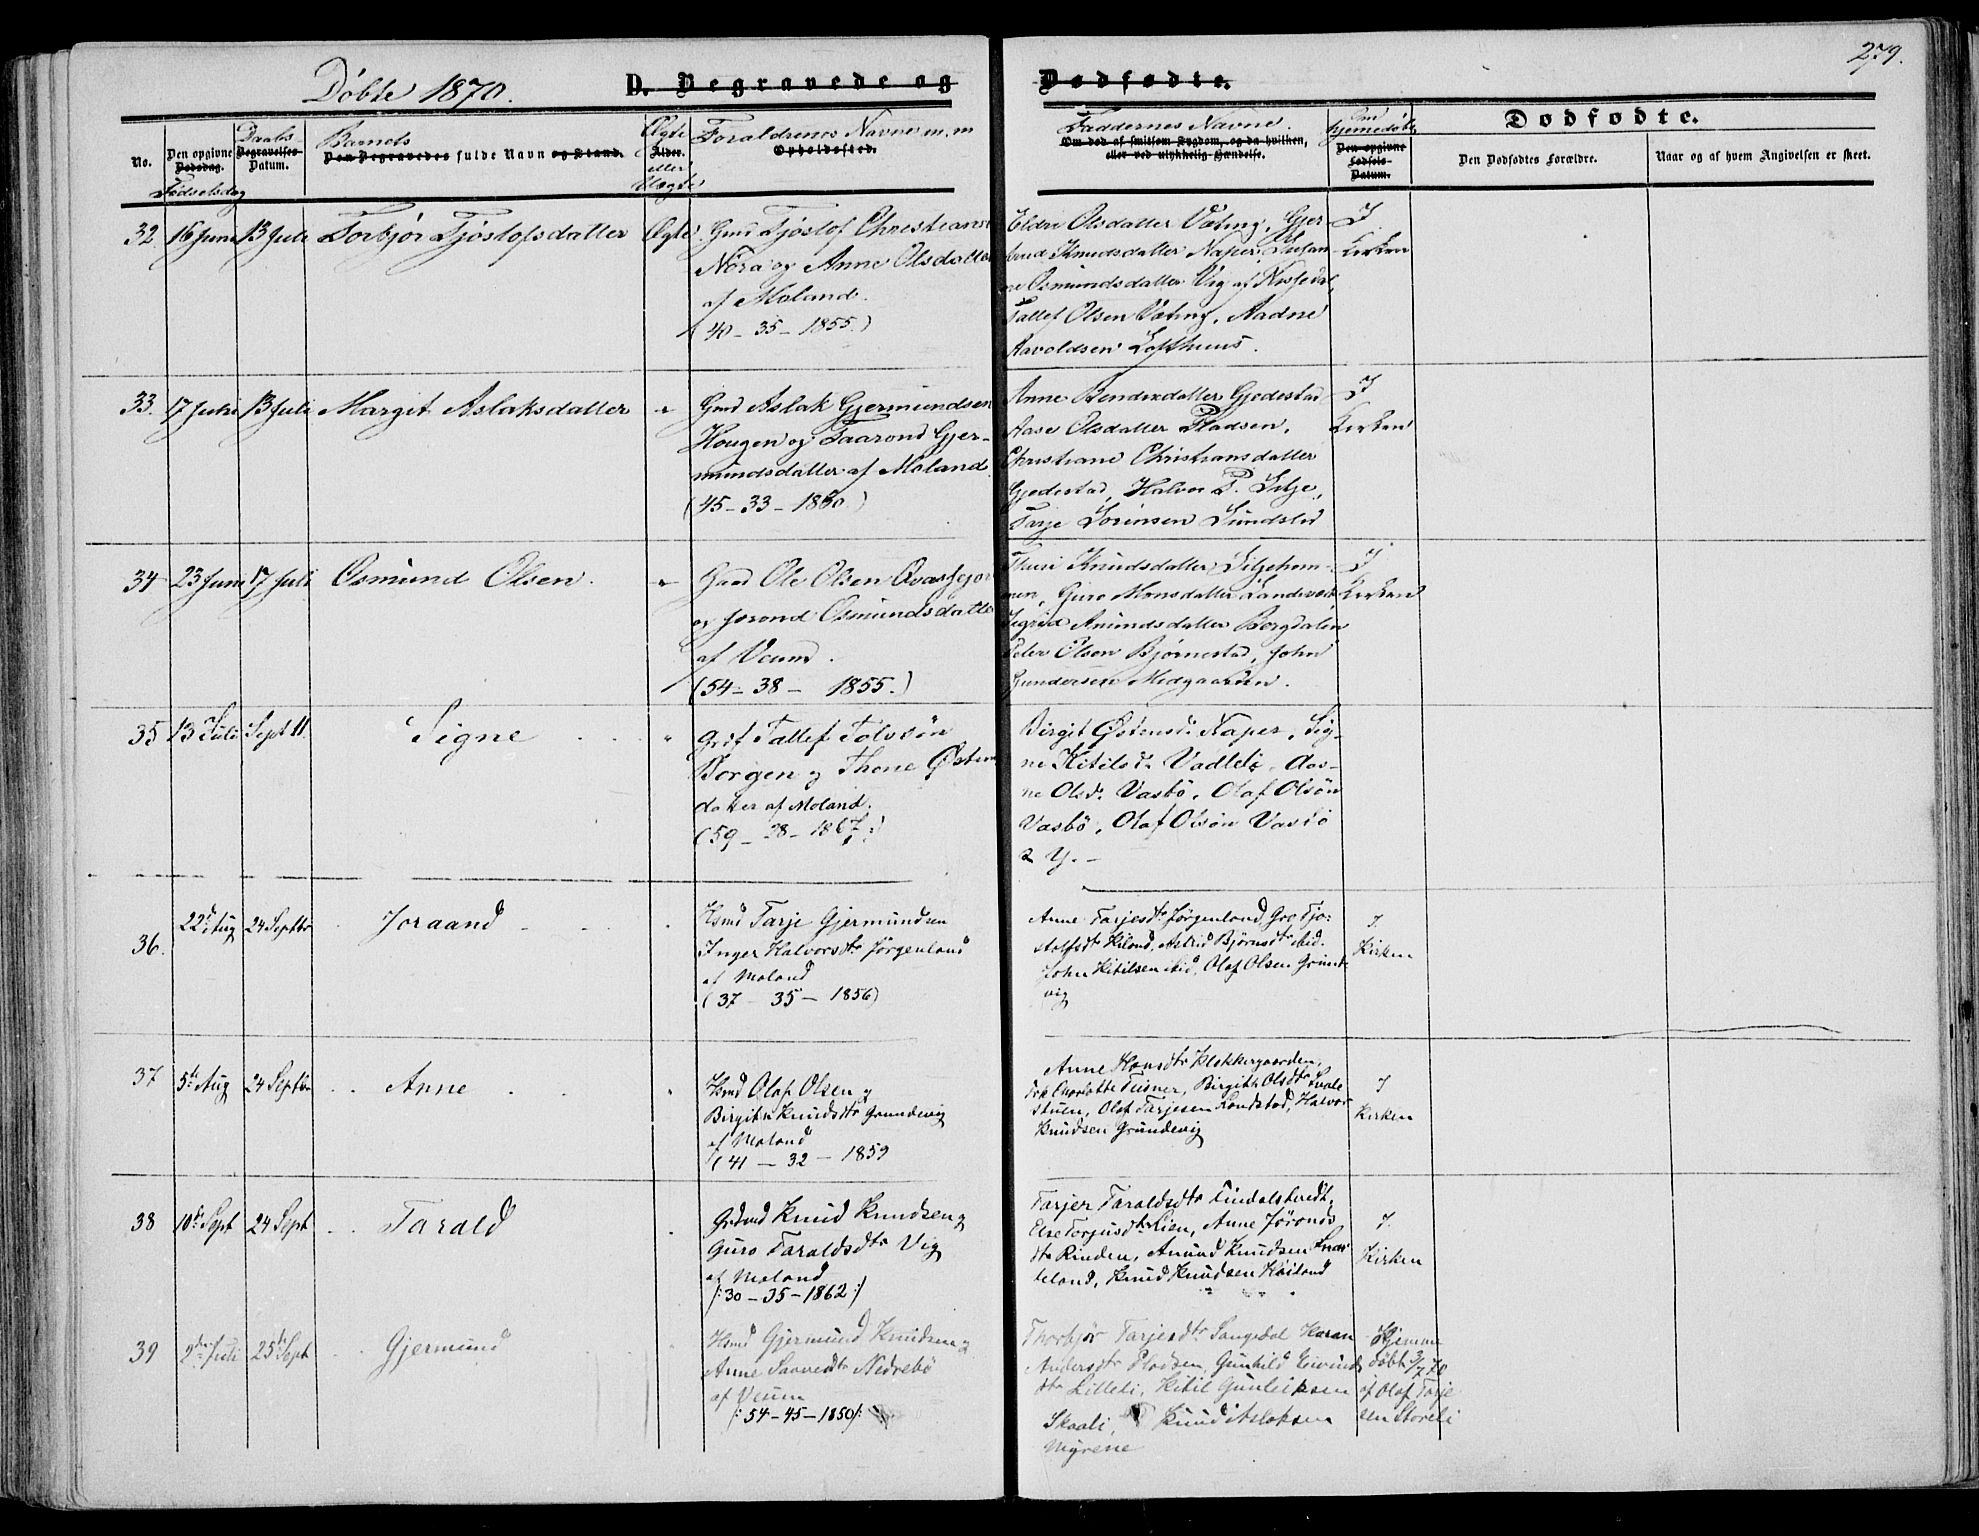 279.
Døbte 1870. D. Begravede og Dødfødte.
No. Den opgivne Dødsdag. Fødselsdag
Daabs Begravelses Datum.
Barnets Den Begravedes fulde Navn og Stand.
Ægte Alder. eller Uægte
Foraldrenes Navne m. m Opholdssted.
Faddernes Navne.
Om død af smitsom Sygdom, og da hvilken,
eller ved ulykkelig Hændelse.
Om hjemmedøbt
Den opgivne Fødsels- Datum.
Dødfødte.
Den Dødfødtes Forældre.
Naar og af hvem Angivelsen er skeet.
32 16 Juni 13 Juli Torbjør Tjøstofsdatter Ægte Gmd Tjøstof Christians
Nora og Anne Olsdatter
af Moland.
(40 - 35 - 1855.)
Eldri Olsdatter Vating, Gjer
trud Knudsdatter Naper, Susan
ne Osmundsdatter Vig af
Tallef Olsen Vating, Aadne
Aavoldsen Lofthuus.
I Kirken
33. 17 Juni 13 Juli Margit Aslaksdatter " Gmd Aslak Gjermundsen
Hougen og Taarond Gjer-
mundsdatter af Moland
(45 - 33 - 1860)
Anne Bendixdatter Gjedestad
Aase Olsdatter Pladsen,
Christiane Christiansdatter
Gjedestad, Halvor P. Lilje,
Tarje Sørensen Sundsted
I Kirken
34 23 Juni 17 Juli Osmund Olsen. " Gaad Ole Olsen
og Jorond Osmundsdatter
af Veum.
(54 - 38 - 1855.)
Thuri Knudsdatter Liljehom-
men, Guro Monsdatter
Sigrid Anundsdatter Borgdalen
Peder Olsen Bjørnestad, John
Gundersen Midgaarden.
I Kirken
35 13 Juli Sept 11. Signe " Grif Tallef Tolvsøn
Borgen og Thone Østens
datter af Moland.
(59 - 28 - 1867:)
Birgit Østensd. Naper, Sig-
ne Kitilsd. Vadleiz, Aas-
ne Olsd. Vasbö, Olaf Olsön
Vasbö, Olaf Olsön Vasbö
2 Y. -
36. 22d Aug 24 Septbr Joraand " Hsmd Tarje Gjermundsen
Inger Halvorsdtr Jørgenland
af Moland
(37 - 35 - 1856)
Anne Tarjesdtr Jørgenland, Gro Tjo-
stolfsdtr Kiland, Astrid Bjørnsdtr ibid.
John Kitilsen ibid, Olaf Olsen Grund-
vig
I. Kirken
37 5te Aug 24 Septbr Anne " Hsmd Olaf Olsen og
Birgith Knudsdtr Grundevig
af Moland
(41 - 32 - 1859
Anne Hansdtr Klokkergaarden,
Frk Charlotte Teisner, Birgith Olsdtr
stuen, Olaf Tarjesen Sondstad, Halvor
Knudsen Grundevig
I Kirken
38 10de Sept 24 Sept Tarald " Grdmd Knud Knudsen og
Guro Taraldsdtr Vig
af Moland
/: 30 - 35 - 1862 :/
Tarjer Taraldsdtr
Else Torjusdtr Lien, Anne Jørons
dtr Rinden, Anund Knudsen
leland, Knud Knudsen Høiland
I. Kirken
39 2den Juli 25de Sept Gjermund " Hsmd Gjermund Knudsen og
Anne Saavesdtr Nedrebö
af Veum
/: 54 - 45 - 1850 /:
Thorbjør Tarjesdtr Songedal Karen
Andersdtr Pladsen, Gunhild Eivinds
dtr Lilleli, Kitil Gunleiksen
Skaali, Knud Aslaksen
Myrene
Hjemme
døbt 3/7 70
af Olaf Tarje
sen Storeli